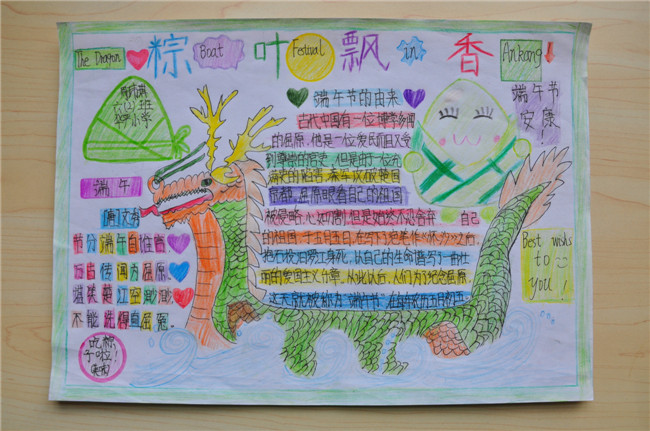 The Dragon 粽 Boat 叶 Festival 飘 in 香 Ankang
六(2)班
小学
端午节的由来
端午节
安康
!
古代中国有一位博学多闻
的屈原,他是一位爱民而且又受
到尊崇的官吏,但是由于一位充
的祖国
被侵略,心如刀割,但是始终不忍舍弃 自己
的祖国,于五月五日,在写下
抱石投汨罗江身死,以自己的生命谱写了一曲壮
丽的爱国主义乐章。从此以后,人们为了纪念屈原
这天就被称为"端午节",在每年农历五月初五
端午
[唐]文秀
节分端午自谁言
万古传闻为屈原
堪笑楚江空渺渺
不能洗得直臣冤。
吃粽
子啦!
Best wishes
to
you!